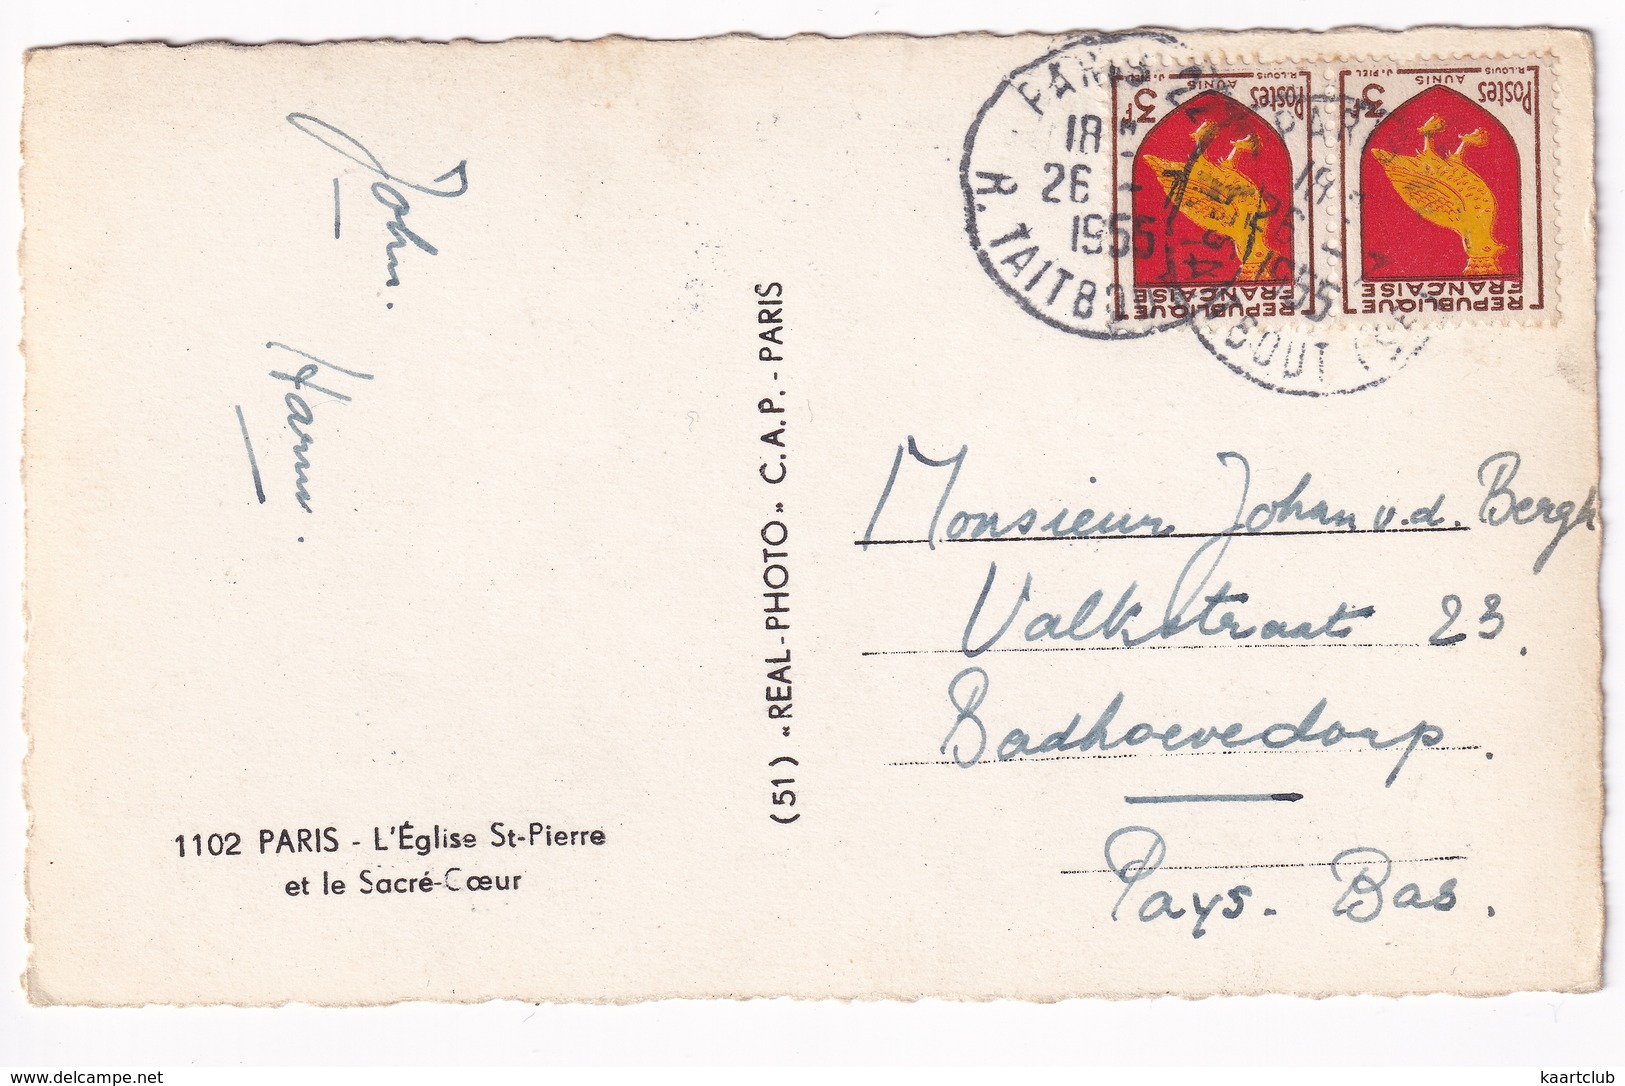 John.
Hanns.
1102 PARIS - L'Église St-Pierre
et le Sacré-Cœur
(51) «REAL-PHOTO» C.A.P. - PARIS
PARIS
18
26
1955
R. TAITBOUT
PARIS
18
26
1955
Postes 3F
R. LOUIS AUNIS J. PIEL
REPUBLIQUE
FRANÇAISE
Postes 3F
R. LOUIS AUNIS J. PIEL
REPUBLIQUE
FRANÇAISE
Monsieur Johan v.d. Bergh
Valkstraat 23.
Badhoevedorp.
Pays-Bas.
www.delcampe.net
kaartclub